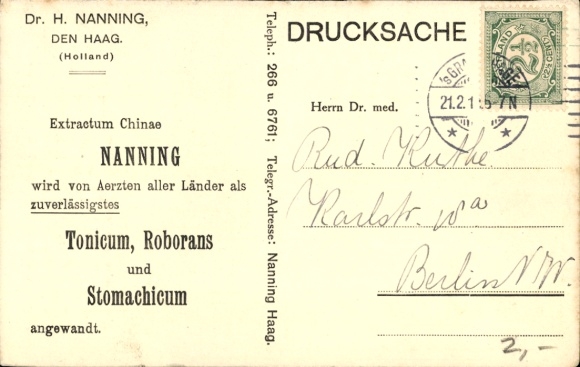 Dr. H. NANNING,
DEN HAAG.
(Holland)
Extractum Chinae
NANNING
wird von Aerzten aller Länder als
zuverlässigstes
Tonicum, Roborans
und
Stomachicum
angewandt.
Teleph.: 266 u. 6761; Telegr.-Adresse: Nanning Haag.
DRUCKSACHE
21.2.1 5-7N
2½
Herrn Dr. med.
Rud. Kuthe.
Karlstr.
Berlin N.W.
2,-